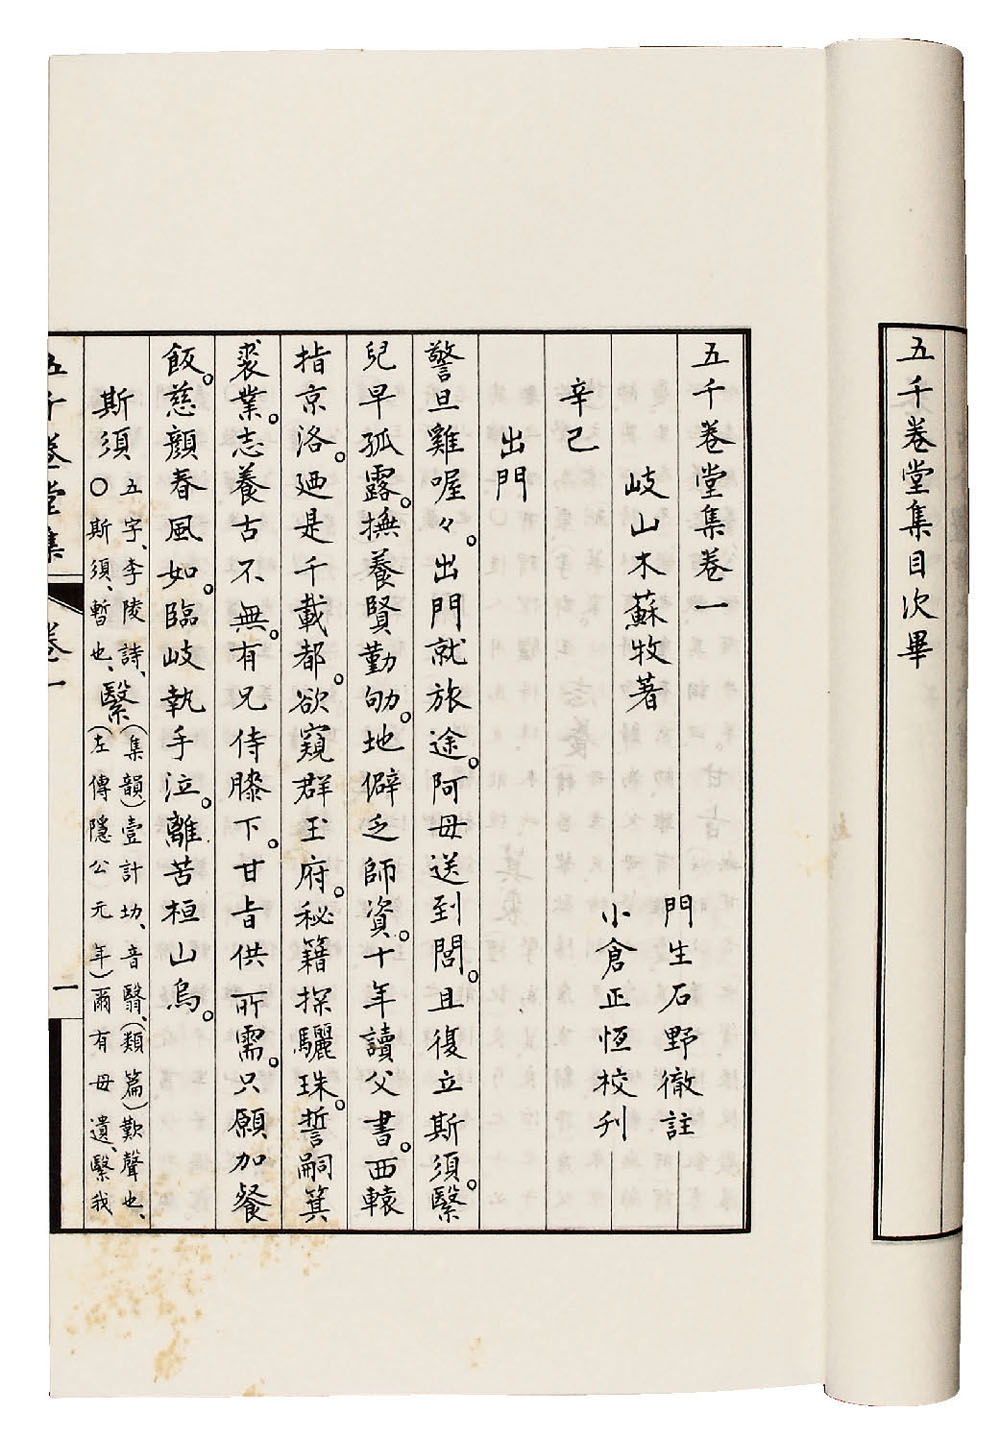 五千卷堂集目次畢
五千卷堂集卷一
岐山木蘇牧著
門生石野徹註
小倉正恆校刋
辛巳
出門
警旦雞喔々。出門就旅途。阿母送到閭。且復立斯須。繄
兒早孤露。撫養賢勤劬。地僻乏師資。十年讀父書。西轅
指京洛。廼是千載都。欲窺群玉府。秘籍探驪珠。誓嗣箕
裘業。志養古不無。有兄侍膝下。甘旨供所需。只願加餐
飯。慈顔春風如。臨岐執手泣。離苦桓山烏。
斯須 五字、李陵詩、○斯須、暫也、 繄 (集韻)壹計切、音翳、(類篇)歎聲也、(左傳隱公元年)爾有母遺、繄我
五千卷堂集 卷一 二